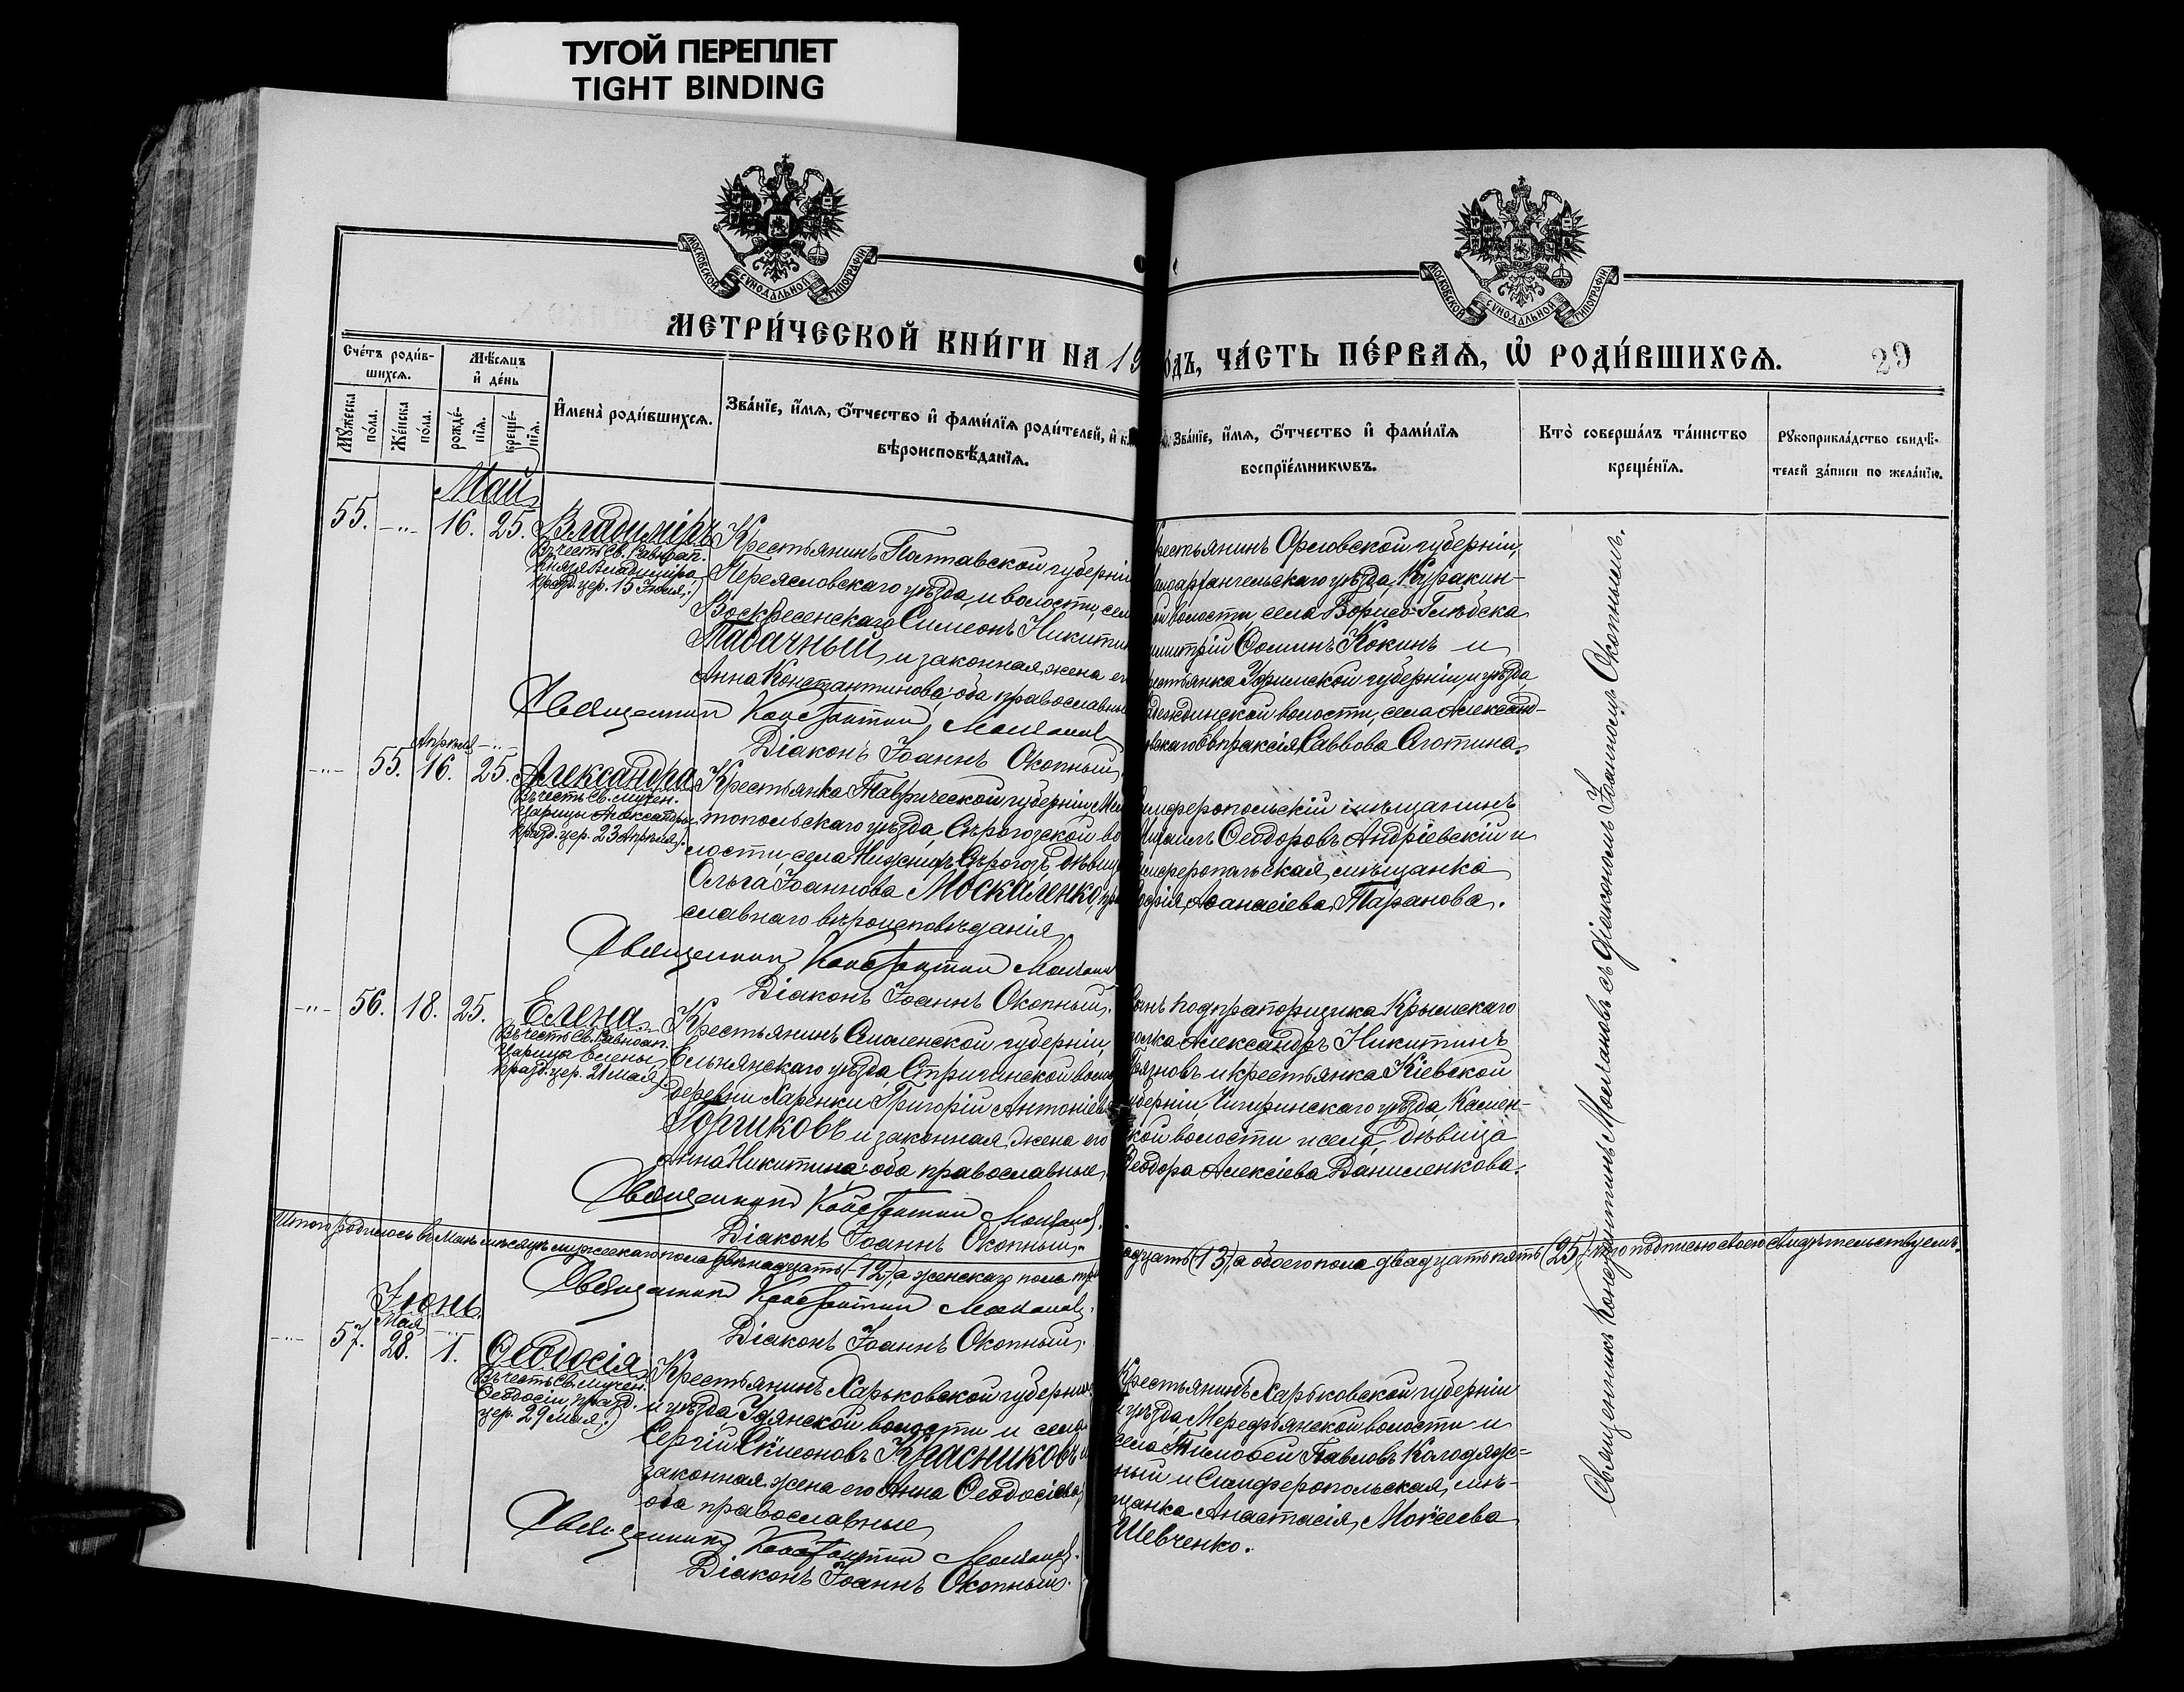 ТУГОЙ ПЕРЕПЛЕТ
TIGHT BINDING
МОСКОВСКОЙ СѴНОДАЛЬНОЙ ТИПОГРАФІИ
МОСКОВСКОЙ СѴНОДАЛЬНОЙ ТИПОГРАФІИ
МЕТРИ́ЧЕСКОЙ КНИ́ГИ НА 19
О́ДЪ, ЧА́СТЬ ПЕ́РВАѦ, Ѡ҆ РОДИ́ВШИХСѦ.
29
Сче́тъ роди́в-
шихсѧ.
Мѣ́сѧцъ
и҆ де́нь
Мꙋ́жеска
по́ла.
Же́нска
по́ла.
рожде́-
нїѧ.
креще́-
нїѧ.
И҆мена̀ роди́вшихсѧ.
Зва́нїе, и҆́мѧ, ѻ҆́тчество и҆ фами́лїѧ роди́телей, и҆ к
вѣроисповѣ́данїѧ.
Зва́нїе, и҆́мѧ, ѻ҆́тчество и҆ фами́лїѧ
воспрїе́мникѡвъ.
Кто̀ соверша́лъ та́инство
креще́нїѧ.
Рꙋкоприкла́дство свидѣ́-
телей за́писи по жела́нїю.
Май
55. -"- 16. 25. Владиміръ
Въ честь Св. Равноап.
Князя Владиміра,
празд. цер. 15 Іюля.)
Крестьянинъ Полтавской губерніи
Переясловскаго уѣзда и волости, села
Воскресенскаго Симеонъ Никитин
Табачный, и законная жена его
Анна Константинова; оба православные
Священникъ Константин Маслановъ
Діаконъ Іоаннъ Окопный.
рестьянинъ Орловской губерніи,
алоархангельскаго уѣзда, Куракин-
ой волости села Борисо-Глѣбска
имитрій Ѳоминъ Кокинъ и
рестьянка Уфимской губерніи и уѣзда
деждинской волости, села Александ-
овскаго Евпраксія Саввова Слотина.
Апрѣля -"-
-"- 55. 16. 25. Александра
Въ честь Св. мучен.
Царицы Александры
празд. цер. 23 Апрѣля.)
Крестьянка Таврической губерніи Мели
топольскаго уѣзда, Сѣрогозской во
лости, села Нижнихъ Сѣрогозъ, дѣвица
Ольга Іоаннова Москаленко, пра
славнаго вѣроисповѣданія.
Священникъ Константин Маслановъ
Діаконъ Іоаннъ Окопный.
имферопольскій мѣщанинъ
ихаилъ Ѳеодоровъ Андріевскій и
имферопольская мѣщанка
офія Аѳанасіева Таранова.
-"- 56. 18. 25. Елена
Въ честь Св. Равноап.
Царицы Елены,
празд. цер. 21 мая.)
Крестьянинъ Смоленской губерніи,
Ельнянскаго уѣзда, Стригинской волос
деревни Харенки Григорій Антоніев
Горчиковъ и законная жена его
Анна Никитина; оба православные.
Священникъ Константин Маслановъ.
Діаконъ Іоаннъ Окопный.
ынъ подпрапорщика Крымскаго
полка Александръ Никитинъ
Грязновъ и крестьянка Кіевской
уберніи, Чигринскаго уѣзда, Камен-
ской волости и села, дѣвица
Ѳеодора Алексіева Даниленкова.
Итого родилось въ Маѣ мѣсяцѣ мужескаго пола двѣнадцать (12), а женскаго пола три
надцать (13), а обоего пола двадцать пять (25), что подписью своею свидѣтельствуемъ.
Священникъ Константин Маслановъ.
Діаконъ Іоаннъ Окопный.
Іюнь
Мая -"-
-"- 57. 28. 1. Ѳеодосія
Въ честь Св. мучен.
Ѳеодосіи, празд.
цер. 29 мая.)
Крестьянинъ Харьковской губерніи
и уѣзда, Удянской волости и села
Сергій Симеоновъ Красниковъ и
законная жена его Анна Ѳеодосіева,
оба православные.
Священникъ Константин Маслановъ.
Діаконъ Іоаннъ Окопный.
Крестьянинъ Харьковской губерніи
и уѣзда, Мерефянской волости и
села Тимоѳей Павловъ Колодяж-
ный и Симферопольская мѣ-
щанка Анастасія Моѵсеева
Шевченко.
Священникъ Константинъ Маслановъ съ діакономъ Іоанномъ Окопнымъ.